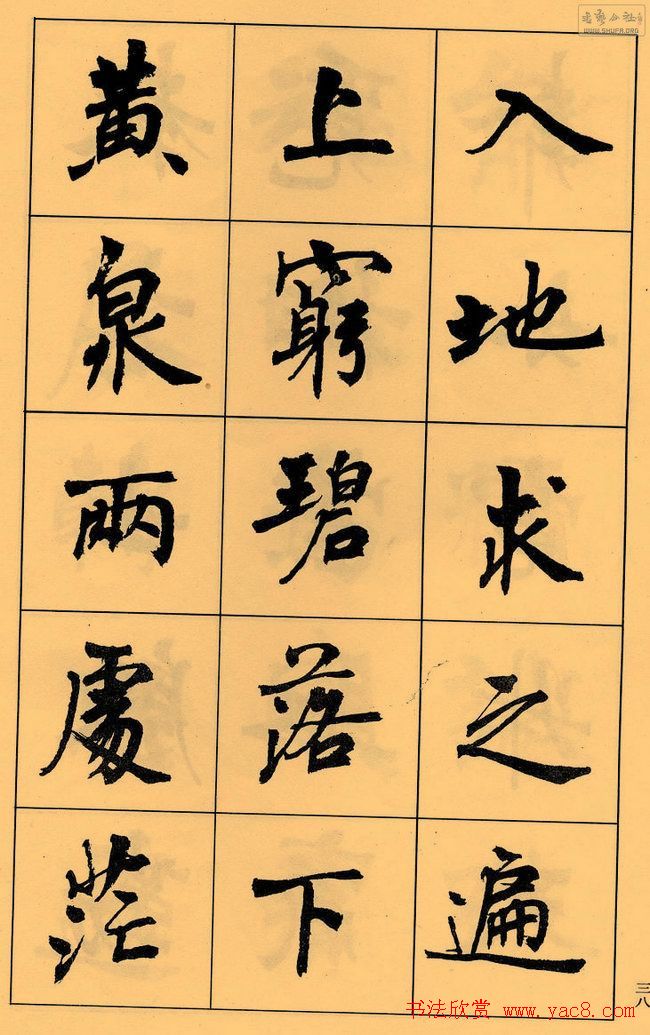 入地求之遍
上窮碧落下
黄泉兩處茫
三八
书法欣赏 www.yac8.com
WWW.SHUFA.ORG